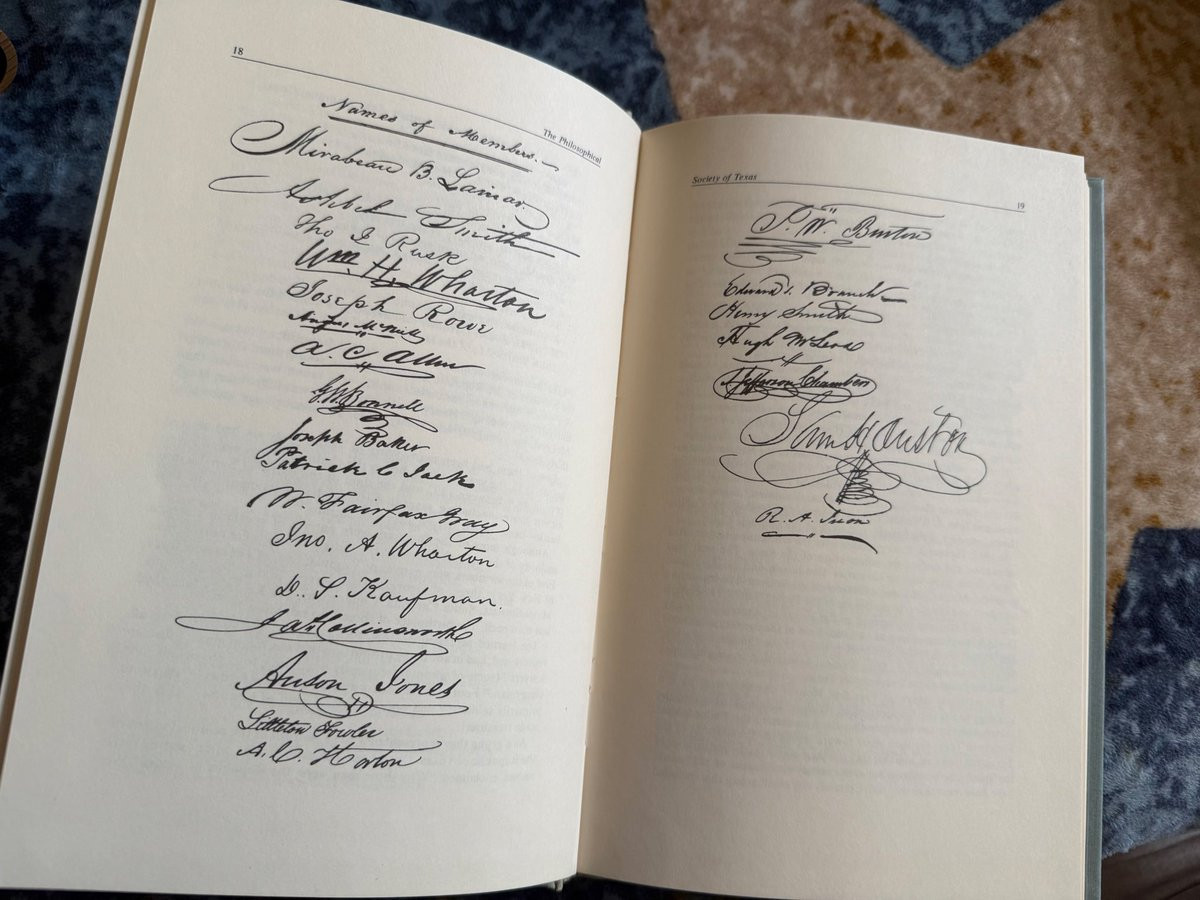 18
The Philosophical
Names of Members.
Mirabeau B. Lamar.
Ashbel Smith
Tho J Rusk
Wm. H. Wharton
Joseph Rowe
Angus McNeill
A. C. Allen
G. W. Bonnell
Joseph Baker
Patrick C Jack
W. Fairfax Gray
Jno. A. Wharton
D. S. Kaufman.
Ja s Collinsworth
Anson Jones
Littleton Fowler
A. C. Horton
Society of Texas
19
I. W. Burton
Edward T. Branch
Henry Smith
Hugh McLeod
T Jefferson Chambers
Sam Houston
R. A. Irion